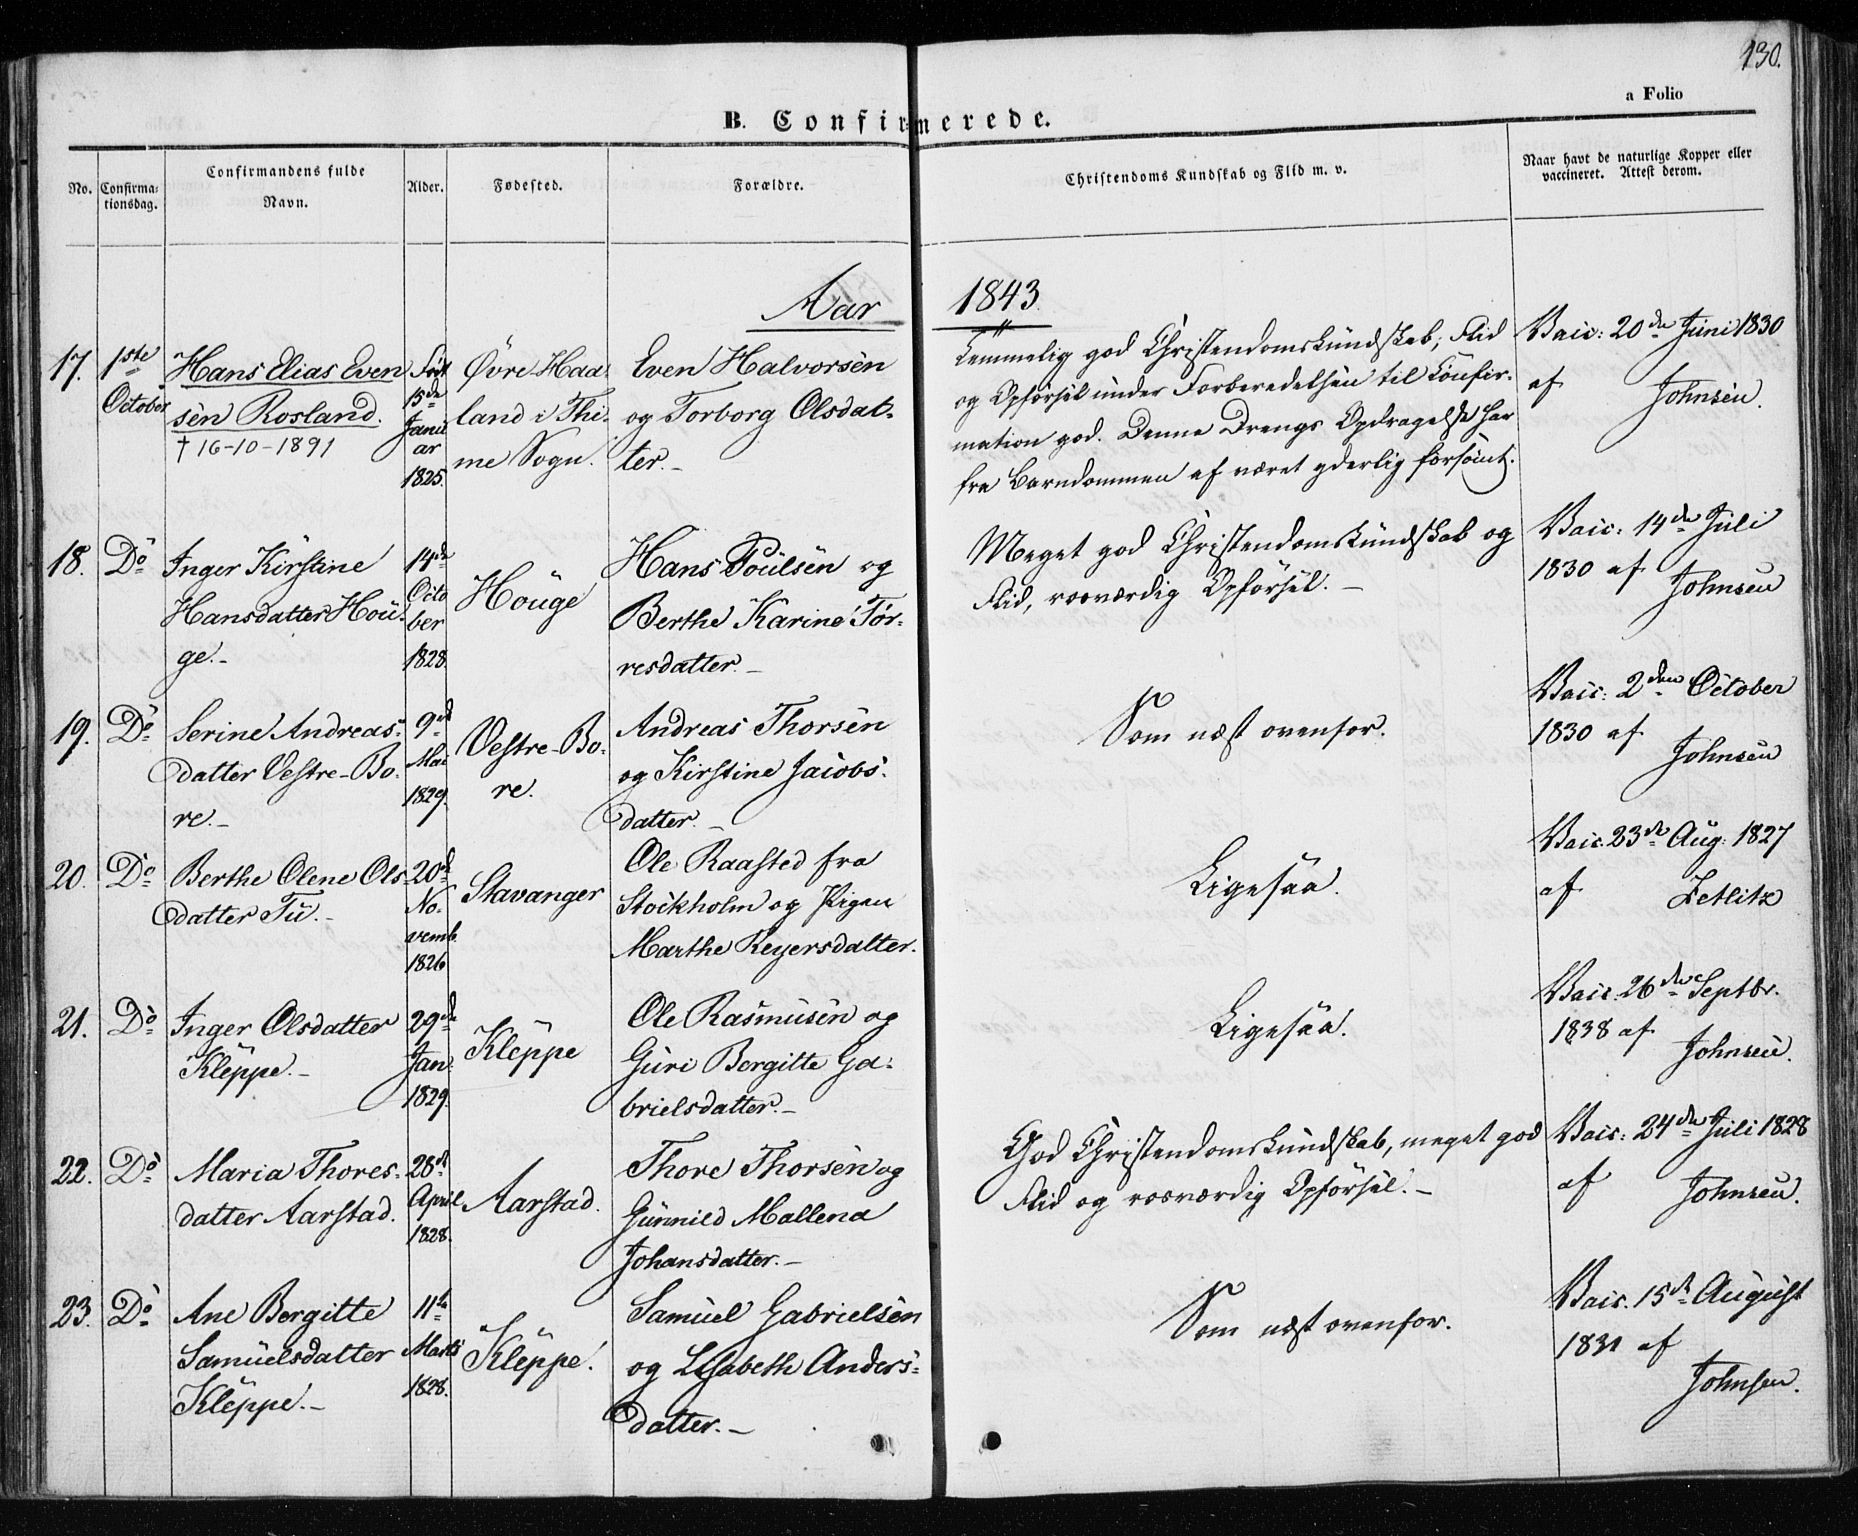 130.
a Folio
B. Confirmerede.
No.
Confirma-
tionsdag.
Confirmandens fulde
Navn.
Alder.
Fødested.
Forældre.
Christendoms Kundskab og Flid m. v.
Naar havt de naturlige Kopper eller
vaccineret. Attest derom.
Aar 1843.
17.
1ste
October
Hans Elias Even
sen Rosland.
† 16-10-1891
Født
15de
Janu
ar
1825.
Øvre Haa-
land i Thi-
me Sogn.
Even Halvorsen
og Torborg Olsdat-
ter.-
Temmelig god Christendomskundskab, Flid
og Opførsel under Forberedelsen til Confir-
mation god. Denne Drengs Opdragelse har
fra Barndommen af været yderlig forsømt.
Vaic: 20de Juni 1830
af
Johnsen.
18.
Do
Inger Kirstine
Hansdatter Hou-
ge.-
14de
Octo
ber
1828.
Houge
Hans Poulsen og
Berthe Karine Tør-
resdatter.-
Meget god Christendomskundskab og
Flid, rosværdig Opførsel.-
Vaic: 14de Juli
1830 af
Johnsen
19.
Do
Serine Andreas-
datter Vestre-Bo-
re.-
9de
Mai
1829.
Vestre-Bo-
re.
Andreas Thorsen
og Kirstine Jacobs-
datter.-
Som næst ovenfor.
Vaic: 2den October
1830 af
Johnsen
20.
Do
Berthe Olene Ols-
datter Tu.-
20de
No-
vemb.
1826
Stavanger
Ole Raasted fra
Stockholm og Pigen
Marthe Reyersdatter.
Ligesaa.
Vaic. 23de Aug: 1827
af
Zetlitz
21.
Do
Inger Olsdatter
Kleppe.-
29de
Jan.
1829.
Kleppe
Ole Rasmusen og
Guri Bergitte Ga-
brielsdatter.-
Ligesaa.
Vaic. 26de Septbr.
1838 af
Johnsen.
22.
Do
Maria Thores-
datter Aarstad.
28de
April
1828.
Aarstad.
Thore Thorsen og
Gunnild Mallena
Johansdatter.-
God Christendomskundskab, meget god
Flid og rosværdig Opførsel.-
Vaic: 24de Juli 1828
af
Johnsen.
23.
Do
Ane Bergitte
Samuelsdatter
Kleppe.-
11te
Marts
1828.
Kleppe.
Samuel Gabrielsen
og Lisabeth Anders-
datter.-
Som næst ovenfor.
Vaic. 15de August
1831 af
Johnsen.